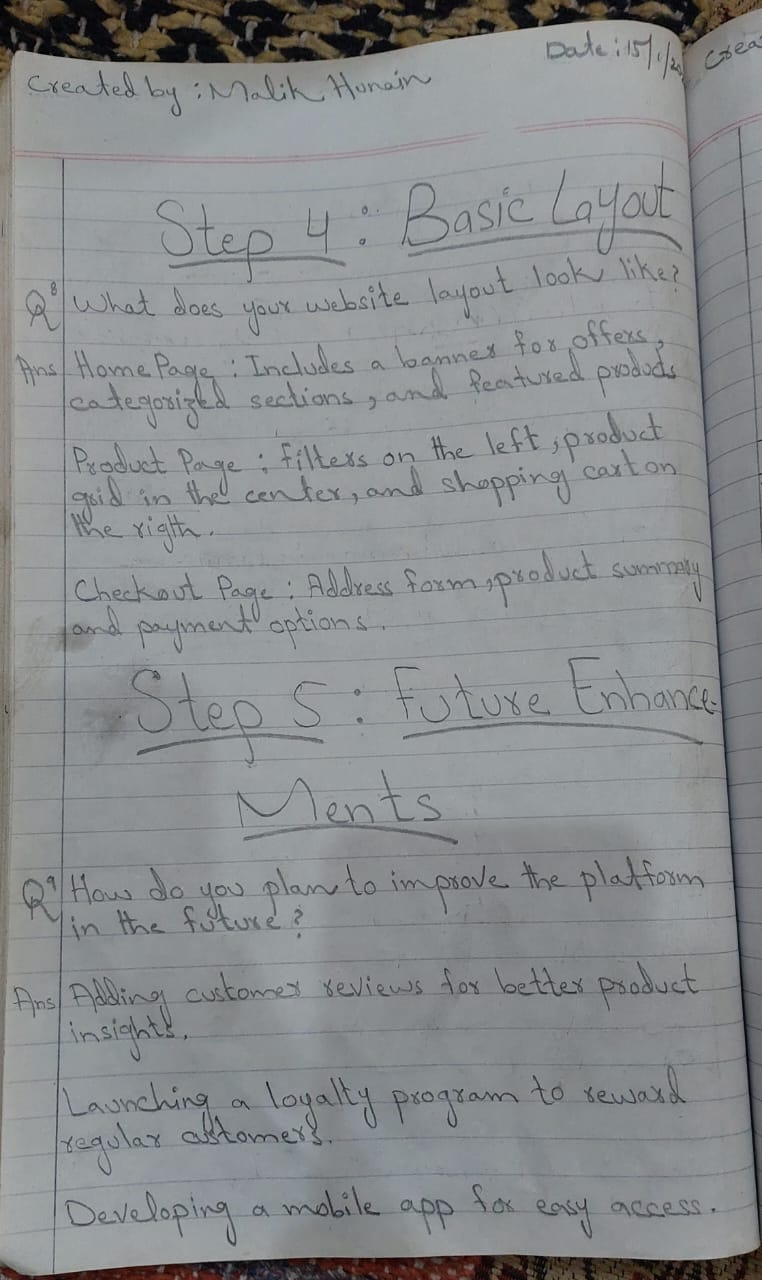 Created by : Malik Hunain
Date : 15/1/20
Crea
Step 4 : Basic Layout
Q8 What does your website layout look like?
Ans Home Page : Includes a banner for offers,
categorized sections, and featured products
Product Page : filters on the left, product
grid in the center, and shopping cart on
the rigth.
Checkout Page : Address form, product summary
and payment options.
Step 5 : Future Enhance-
Ments
Q9 How do you plan to improve the platform
in the future?
Ans Adding customer reviews for better product
insights.
Launching a loyalty program to reward
regular customers.
Developing a mobile app for easy access.